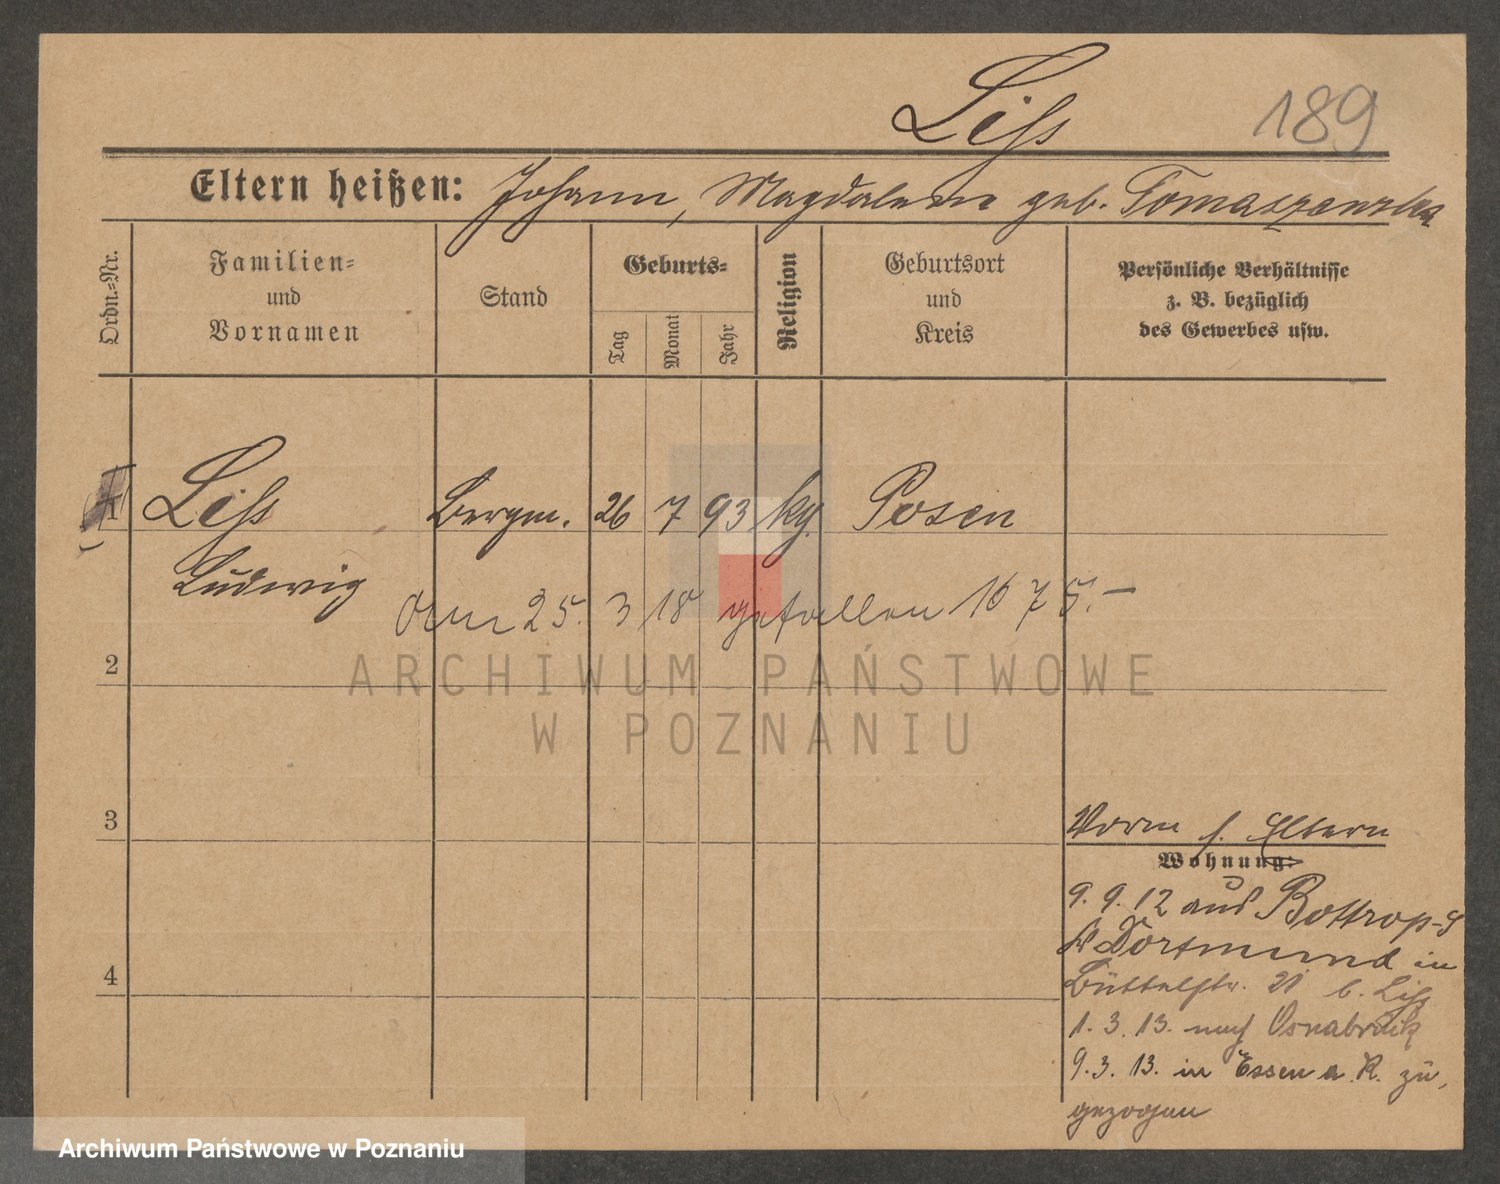 Liſs 189
Eltern heißen: Johann, Magdalena geb. Tomaszewska
Ordn.=Nr.
Familien=
und
Vornamen
Stand
Geburts=
Tag
Monat
Jahr
Religion
Geburtsort
und
Kreis
Persönliche Verhältnisse
z. B. bezüglich
des Gewerbes usw.
1 Liſs Bergm. 26 7 93 kg. Posen
Ludwig
am 25. 3 18 gefallen 1675.–
2
ARCHIWUM PAŃSTWOWE
W POZNANIU
3
Vorm s. Eltern
Wohnung:
9. 9. 12 aus Bottrop
Dortmund in
Büttelstr. 21 b. Liſs
1. 3. 13. nach Osnabrück
9. 3. 13. in Essen a. R. zu,
gezogen
4
Archiwum Państwowe w Poznaniu